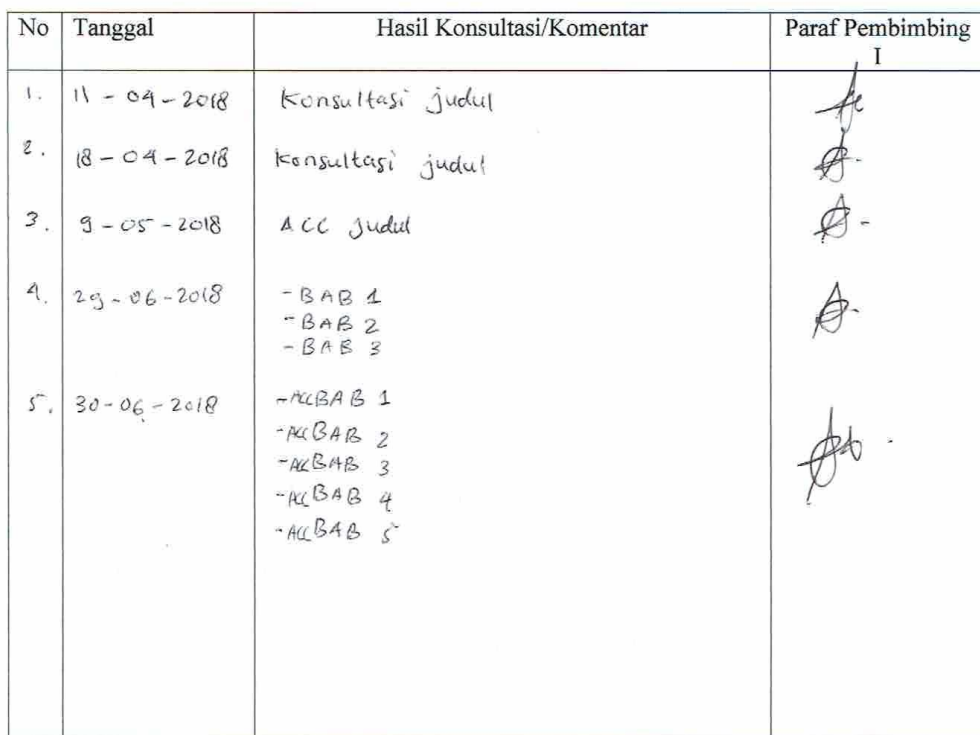 No Tanggal Hasil Konsultasi/Komentar Paraf Pembimbing
I
1. 11 - 04 - 2018 Konsultasi judul
2. 18 - 04 - 2018 Konsultasi judul
3. 9 - 05 - 2018 ACC Judul
4. 29 - 06 - 2018 - BAB 1
- BAB 2
- BAB 3
5. 30 - 06 - 2018 - ACC BAB 1
- ACC BAB 2
- ACC BAB 3
- ACC BAB 4
- ACC BAB 5